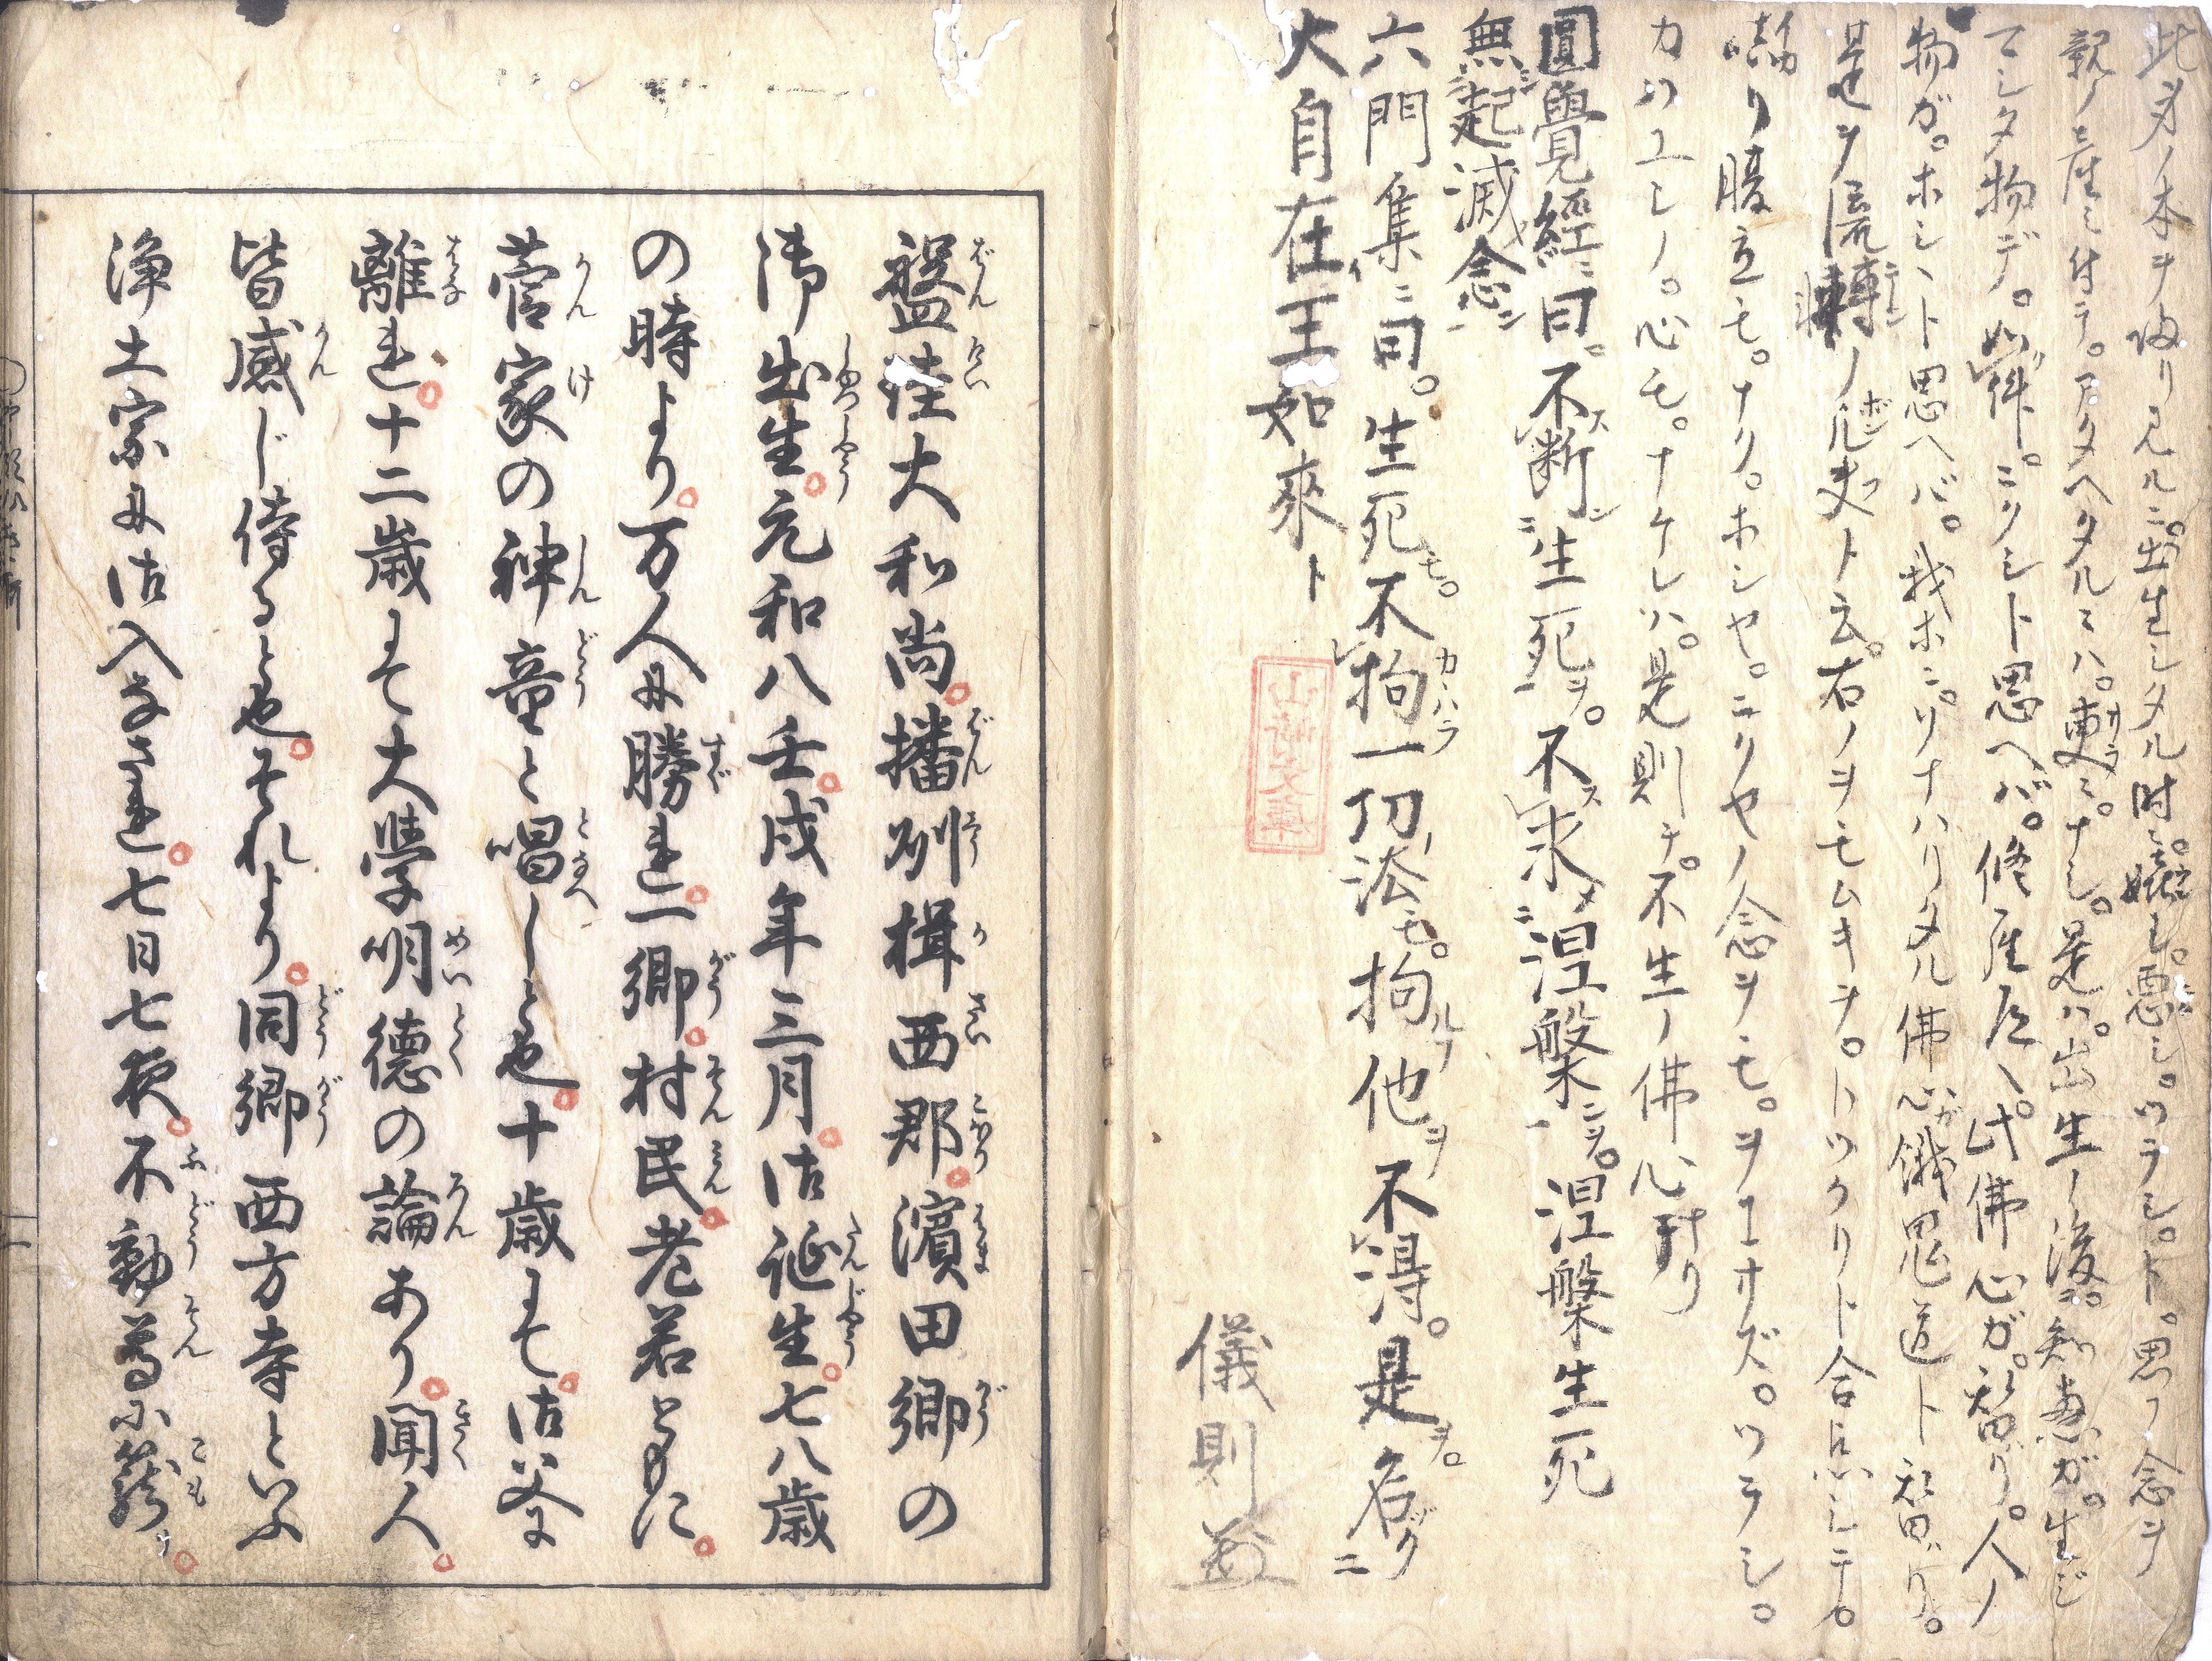 此身ノ本ヲ海リ見ルニ。出生シタル時。嬉シ。悪シ。ツラシ。ト。思フ念ヲ
親ノ産ミ付テ。アタヘタルニハ。更ニ。ナシ。是ハ。出生ノ後。知恵ガ。生ジ
マシタ物デ。ニクシト思ヘバ。修羅道ヘ。此佛心ガ。替リ。人ノ
物ガ。ホシヽト思ヘバ。我ホシ。ソナハリタル佛心ガ餓鬼道ト替リ。
是ヲ流轉ノ凡夫ト云。右ノヲモムキヲ。トツクリト合点シテ。
リ腹立モ。ナク。ホシヤ。ニクヤノ念ヲモ。ヲコサズ。ツラシ。
カハユシノ。心モ。ナケレハ。是則チ。不生ノ佛心計リ
圓覺經ニ曰。不断生死ヲ。不求涅槃ニヲ。涅槃生死
無起滅念
六門集ニ曰。生死モ。不拘一切法モ。拘他ヲ不得。是ヲ。名ヅク
大自在王如來ト
儀則
盤珪大和尚。播州揖西郡。濱田郷の
御出生。元和八壬戌年三月。御誕生。七八歳
の時より。万人に勝れ。一郷。村民。老若ともに。
菅家の神童と唱へしと也。十歳にて。御父に
離れ。十二歳にて大学明徳の論あり。聞人。
皆感じ侍ると也。それより。同郷西方寺といふ
浄土宗に御入なされ。七日七夜。不動尊に籠。